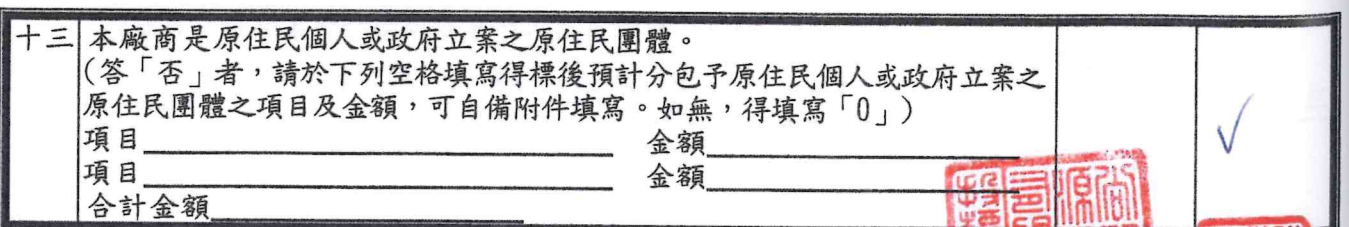 十三 本廠商是原住民個人或政府立案之原住民團體。
(答「否」者，請於下列空格填寫得標後預計分包予原住民個人或政府立案之
原住民團體之項目及金額，可自備附件填寫。如無，得填寫「0」)
項目 金額
項目 金額
合計金額
✓